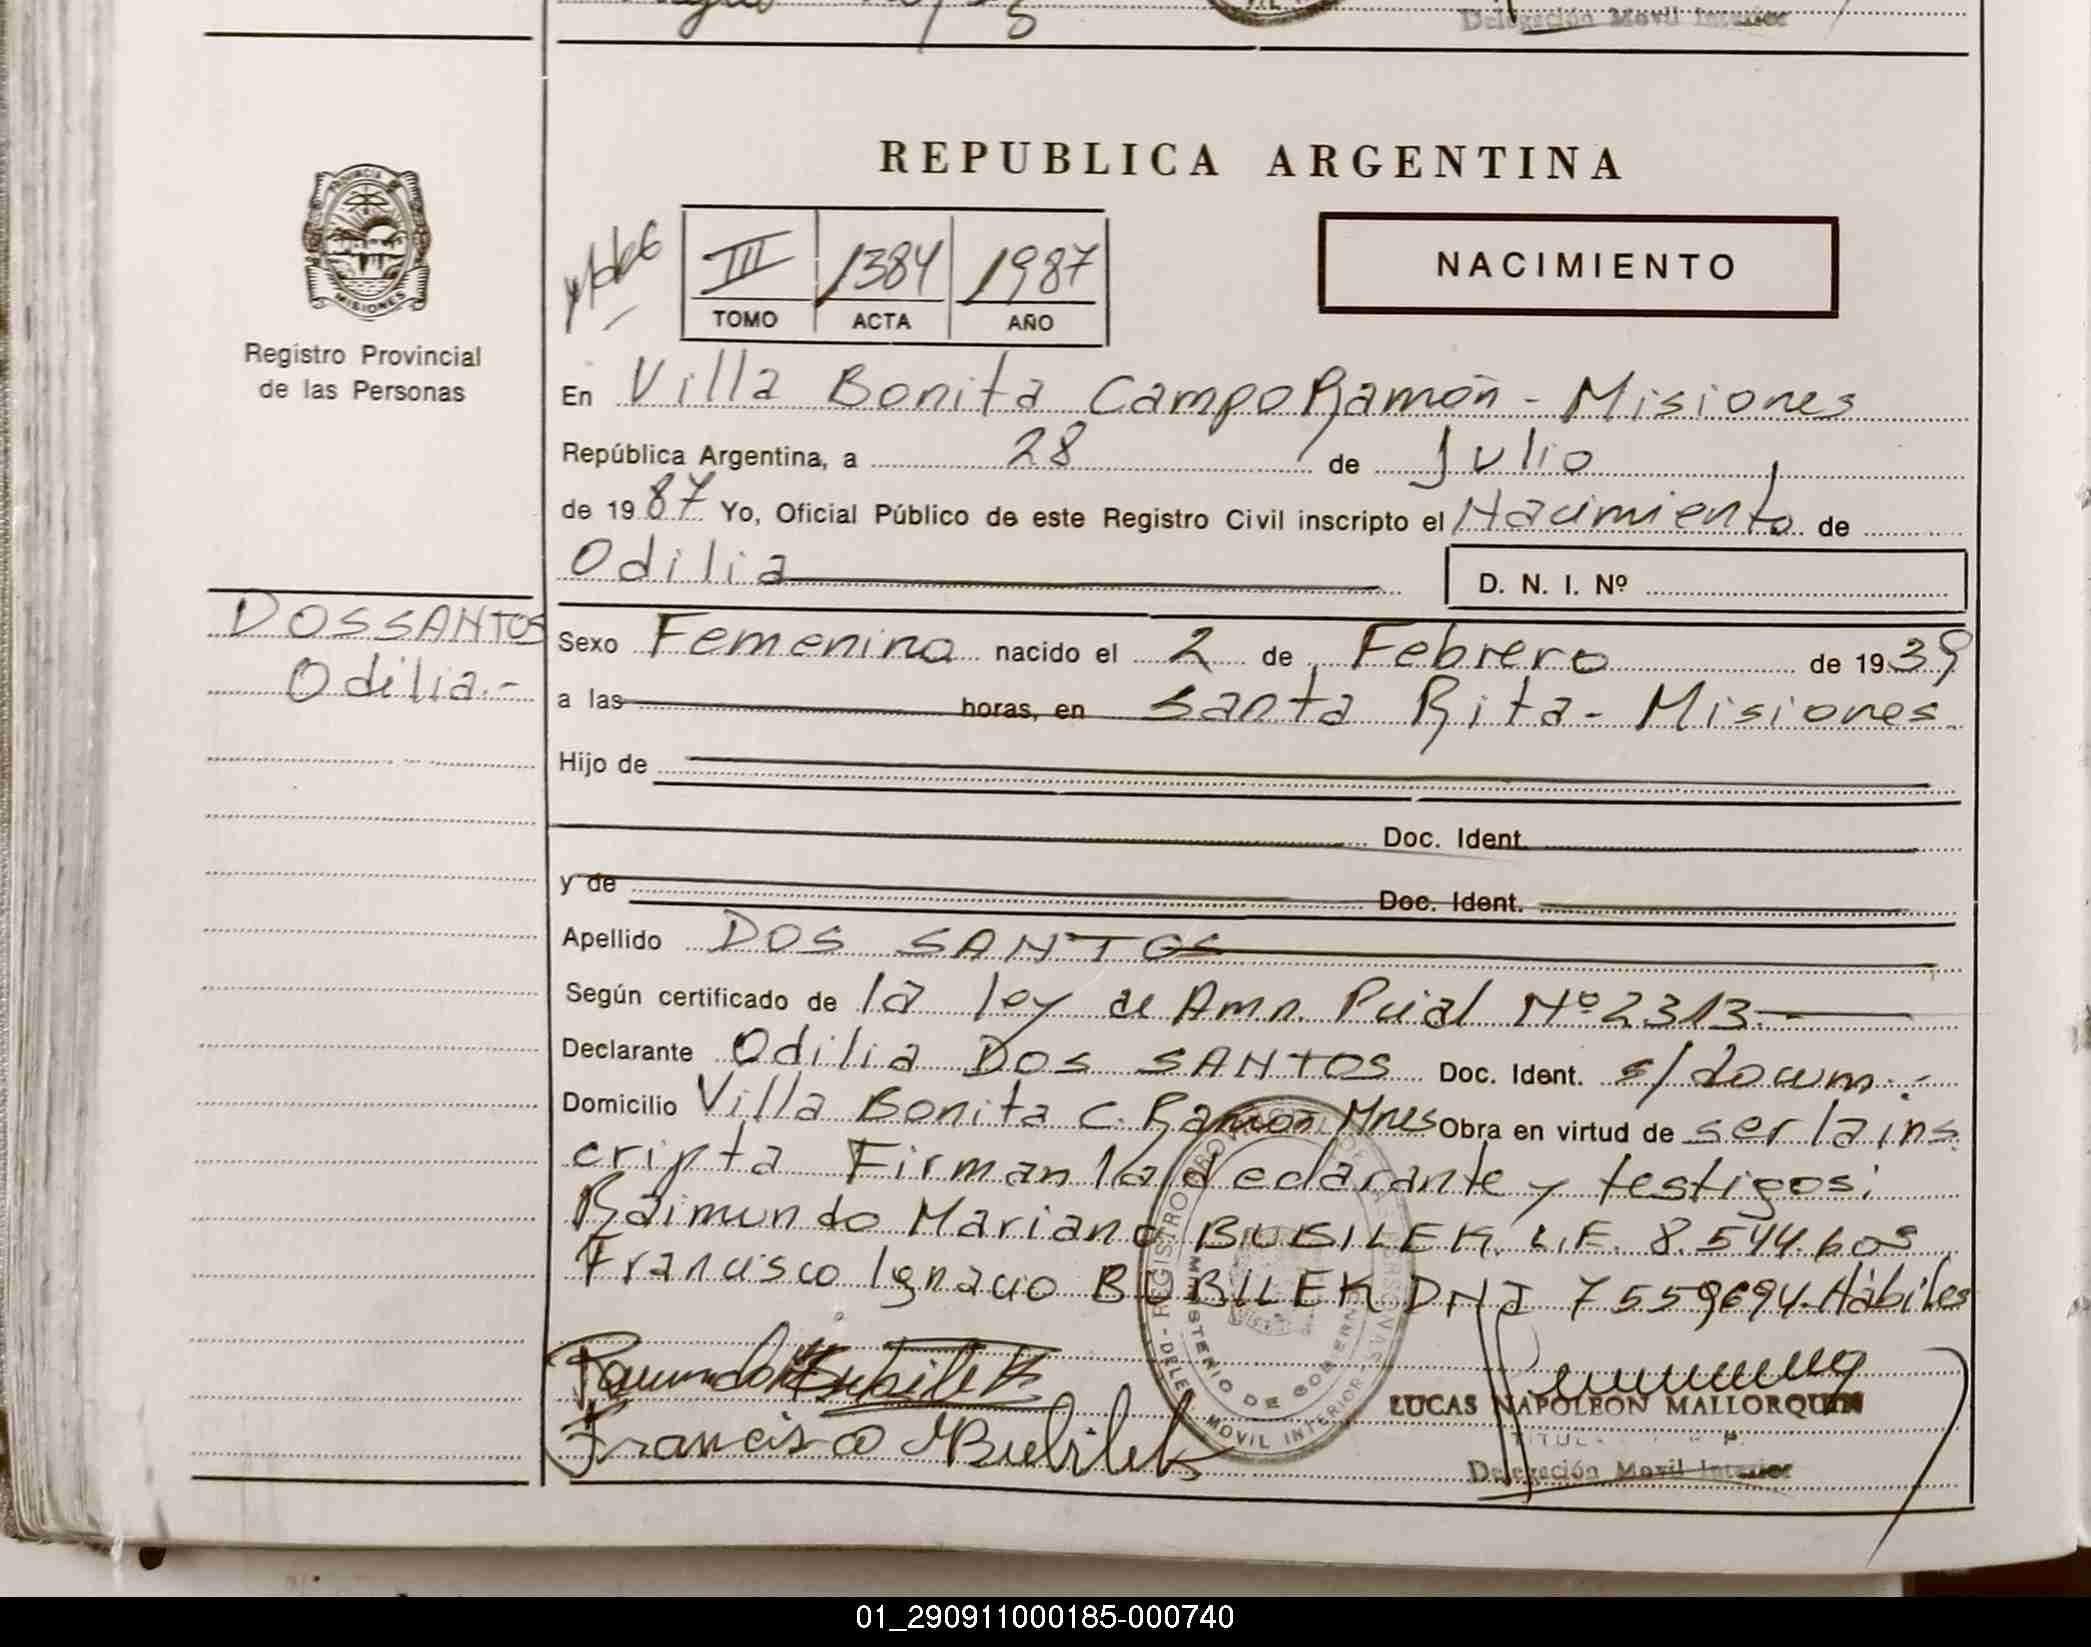 Delegación Movil Interior
REPUBLICA ARGENTINA
PROVINCIA DE
MISIONES
Registro Provincial
de las Personas
III 1384 1987
TOMO ACTA AÑO
NACIMIENTO
En Villa Bonita Campo Ramón - Misiones
República Argentina, a 28 de Julio
de 1987 Yo, Oficial Público de este Registro Civil inscripto el Nacimiento de
Odilia D. N. I. Nº
DOS SANTOS
Odilia.-
Sexo Femenino nacido el 2 de Febrero de 1939
a las horas, en Santa Rita - Misiones
Hijo de
Doc. Ident.
y de Doc. Ident.
Apellido DOS SANTOS
Según certificado de la ley de Amn. Pcial Nº 2313.-
Declarante Odilia DOS SANTOS Doc. Ident. s/docum.-
Domicilio Villa Bonita C. Ramón Mnes Obra en virtud de ser la ins
cripta Firman la declarante y testigos:
Raimundo Mariano BUBILEK L.E. 8.544.605
Francisco Ignacio BUBILEK DNI 7559694. Hábiles
REGISTRO PROVINCIAL DE LAS PERSONAS - DELEG. MOVIL INTERIOR -
MINISTERIO DE GOBIERNO
Raimundo M Bubilek
Francisco Bubilek
LUCAS NAPOLEON MALLORQUIN
Delegación Movil Interior
01_290911000185-000740